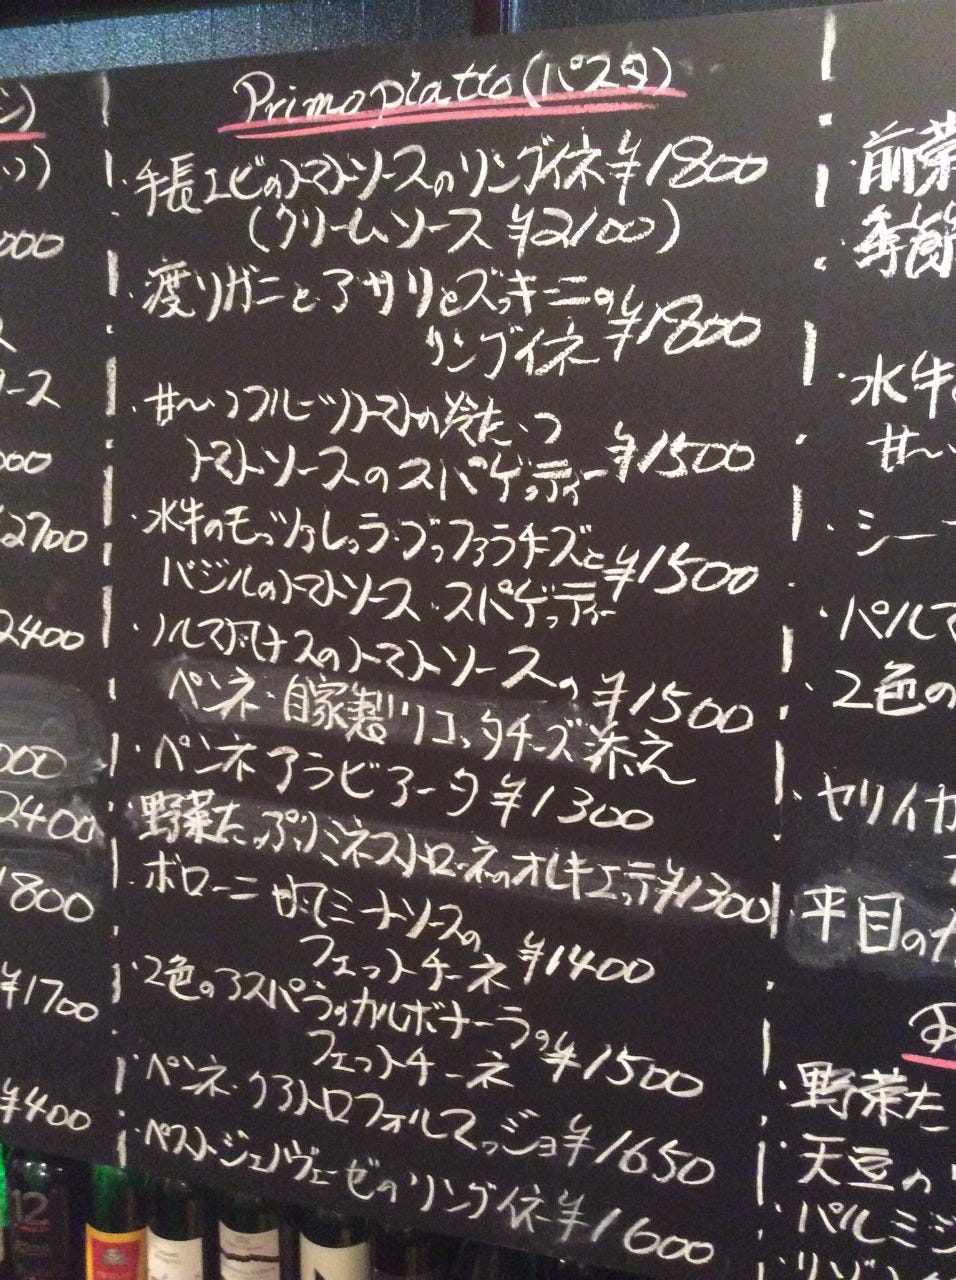 Primo piatto (パスタ)
・手長エビのトマトソースのリングイネ ¥1800
(クリームソース ¥2100)
・渡りガニとアサリとズッキーニの
リングイネ ¥1800
・甘〜いフルーツトマトの冷たいっ
トマトソースのスパゲッティー ¥1500
・水牛のモッツァレッラ・ブッファラチーズと
バジルのトマトソース・スパゲッティー ¥1500
・ノルマ風ナスのトマトソースの
ペンネ・自家製リコッタチーズ添え ¥1500
・ペンネアラビアータ ¥1300
・野菜たっぷりミネストローネのオレキエッテ ¥1300
・ボローニャ風ミートソースの
フェットチーネ ¥1400
・2色のアスパラのカルボナーラの
フェットチーネ ¥1500
・ペンネ・クアトロフォルマッジョ ¥1650
・ペスト・ジェノヴェーゼのリングイネ ¥1600
000
ース
000
2700
2400
000
2400
1800
¥1700
¥400
前菜
季節
水牛
甘〜い
・シー
・パルマ
・2色の
・ヤリイカ
・平目の
・野菜た
・天豆の
・パルミジ
リゾ
12